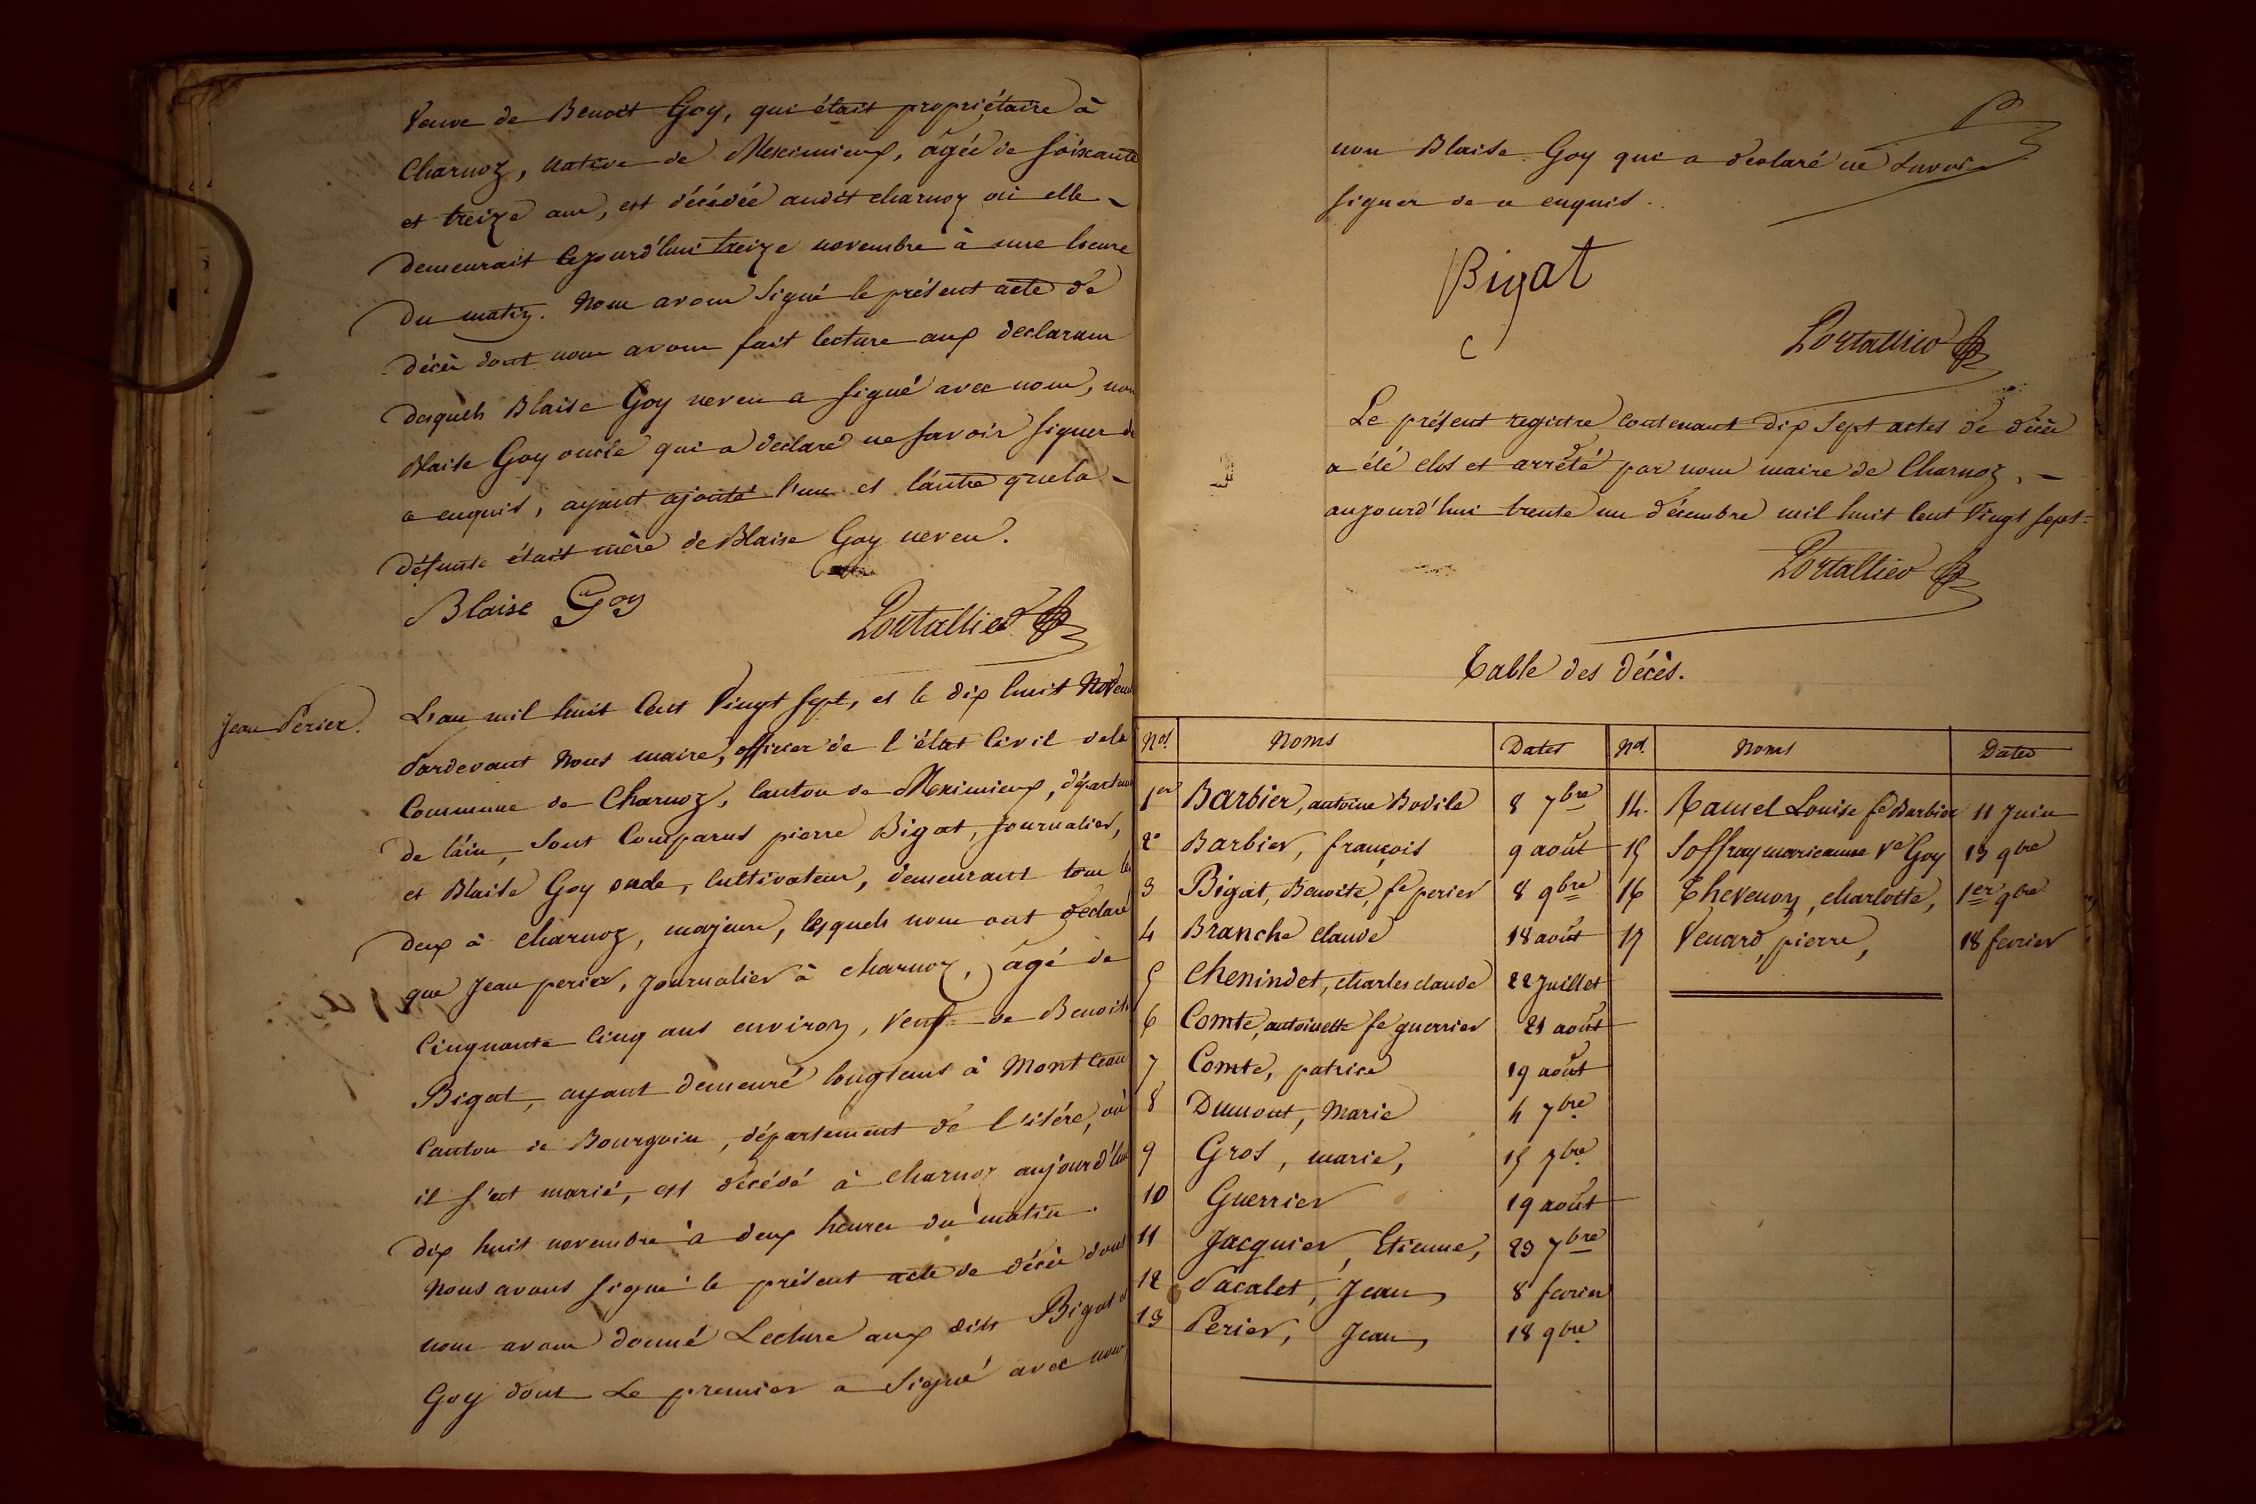 Veuve de Benoit Goy, qui était propriétaire à
Charnoz, native de Meximieux, âgée de soixante
et treize ans, est décédée audit charnoz où elle
demeurait cejourd'hui treize novembre à une heure
du matin. Nous avons signé le présent acte de
décès dont nous avons fait lecture aux declarans
desquels Blaise Goy neveu a signé avec nous, non
Blaise Goy oncle qui a declaré ne savoir signer de
ce enquis, ayant ajouté l'un et l'autre que la
défunte était mère de Blaise Goy neveu.
Blaise Goy
Portallier
Jean Périer.
L'an mil huit Cent Vingt sept, et le dix huit Novem
Pardevant Nous maire, officier de l'état Civil de la
Commune de Charnoz, Canton de Meximieux, départeme
de l'ain, sont Comparus pierre Bigat, Journalier,
et Blaise Goy oncle, cultivateur, demeurant tous les
deux à charnoz, majeurs, lesquels nous ont déclaré
que Jean perier, Journalier à charnoz, âgé de
Cinquante Cinq ans environ, Veuf de Benoite
Bigat, ayant demeuré longtems à Montceau
Canton de Bourgoin, département de l'isère, où
il s'est marié, est décédé à charnoz aujourd'hui
dix huit novembre à deux heures du matin.
Nous avons signé le présent acte de décès dont
nous avons donné Lecture aux dits Bigat et
Goy dont Le premier a signé avec nous,
non Blaise Goy qui a déclaré ne savoir
signer de ce enquis.
Bigat
Portallier
Le présent registre contenant dix sept actes de décès
a été clos et arrêté par nous maire de Charnoz,
aujourd'hui trente un décembre mil huit Cent Vingt sept
Portallier
Table des décès.
Nos. Noms Dates Nos. Noms Dates
1er Barbier, antoine Bodile 8 7bre 14. Ramel Louise fe Barbier 11 Juin
2e Barbier, françois 9 août 15 Soffray marieanne Ve Goy 13 9bre
3 Bigat, Benoite, fe perier 8 9bre 16 Thevenon, charlotte, 1er 9bre
4 Branche claude 18 août 17 Venard, pierre, 18 fevrier
5 Chenindet, charles claude 22 Juillet
6 Comte, antoinette fe guerrier 21 août
7 Comte, patrice 19 août
8 Dumont, Marie 4 7bre
9 Gros, marie, 15 7bre
10 Guerrier 19 août
11 Jacquier, Etienne, 23 7bre
12 Pacalet, Jean 8 fevrier
13 Perier, Jean, 18 9bre